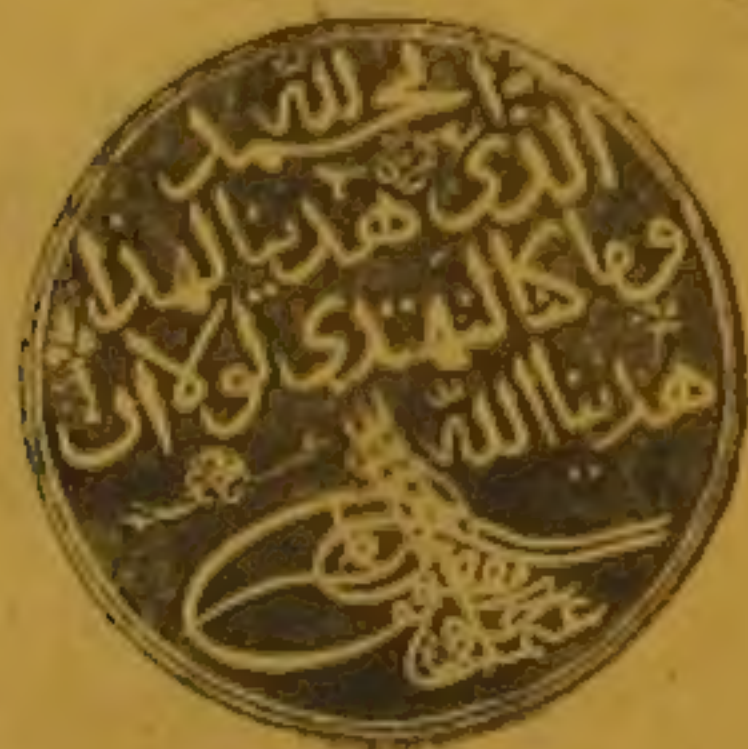 الحمد لله
الذى هدينا لهذا
وما كنا لنهتدى لولا ان
هدينا اللّه